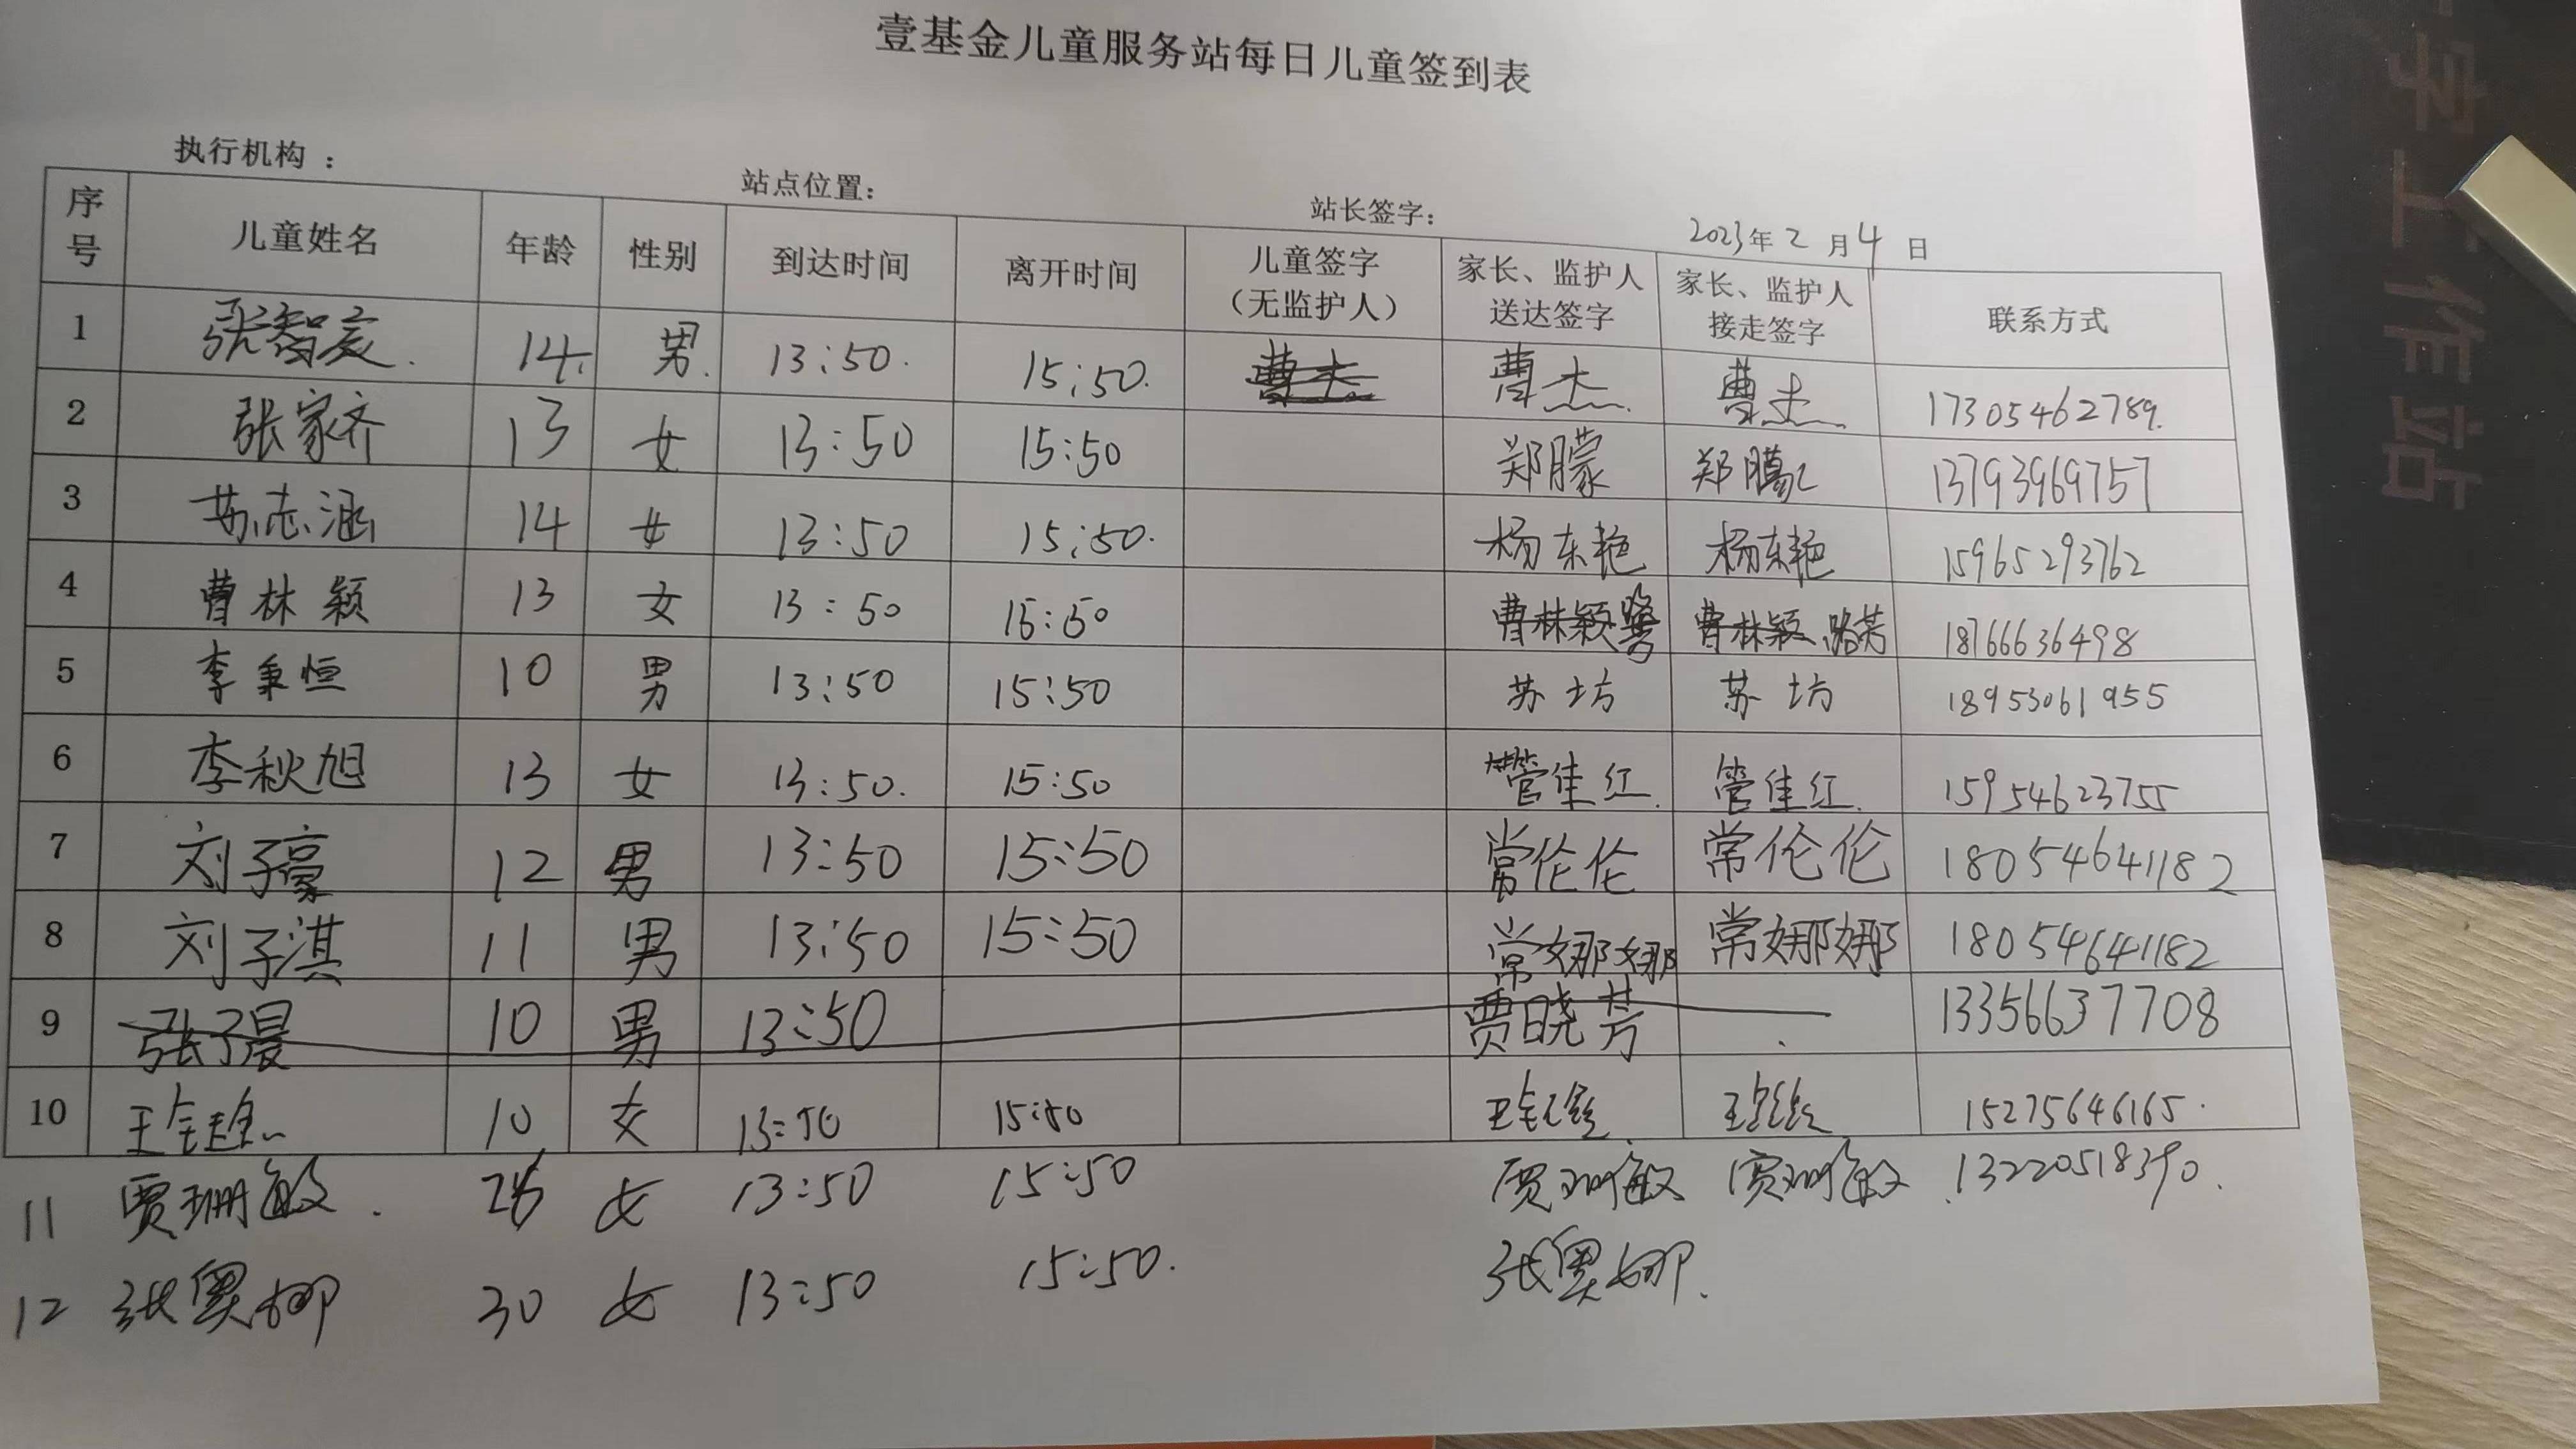 壹基金儿童服务站每日儿童签到表
执行机构 : 站点位置: 站长签字: 2023年 2 月 4 日
序号 儿童姓名 年龄 性别 到达时间 离开时间 儿童签字(无监护人) 家长、监护人送达签字 家长、监护人接走签字 联系方式
1 张智 14. 男. 13:50. 15:50. 曹杰 曹杰 曹杰 17305462789.
2 张家齐 13 女 13:50 15:50 郑朦 郑朦 13793969757
3 苏志涵 14 女 13:50 15:50. 杨东艳 杨东艳 15965293762
4 曹林颖 13 女 13:50 15:50 曹林颖 曹林颖 路芳 18766636498
5 李秉恒 10 男 13:50 15:50 苏坊 苏坊 18953061955
6 李秋旭 13 女 13:50. 15:50 管佳红. 管佳红. 15954623755
7 刘子豪 12 男 13:50 15:50 常伦伦 常伦伦 18054641182
8 刘子淇 11 男 13:50 15:50 常娜娜 常娜娜 18054641182
9 张子晨 10 男 13:50 贾晓芳 13356637708
10 王 10 女 13:50 15:50 王 王 15275646165.
11 贾珊敏. 女 13:50 15:50 贾珊敏 贾珊敏 13220518390.
12 张奥娜 30 女 13:50 15:50. 张奥娜.
字工作站